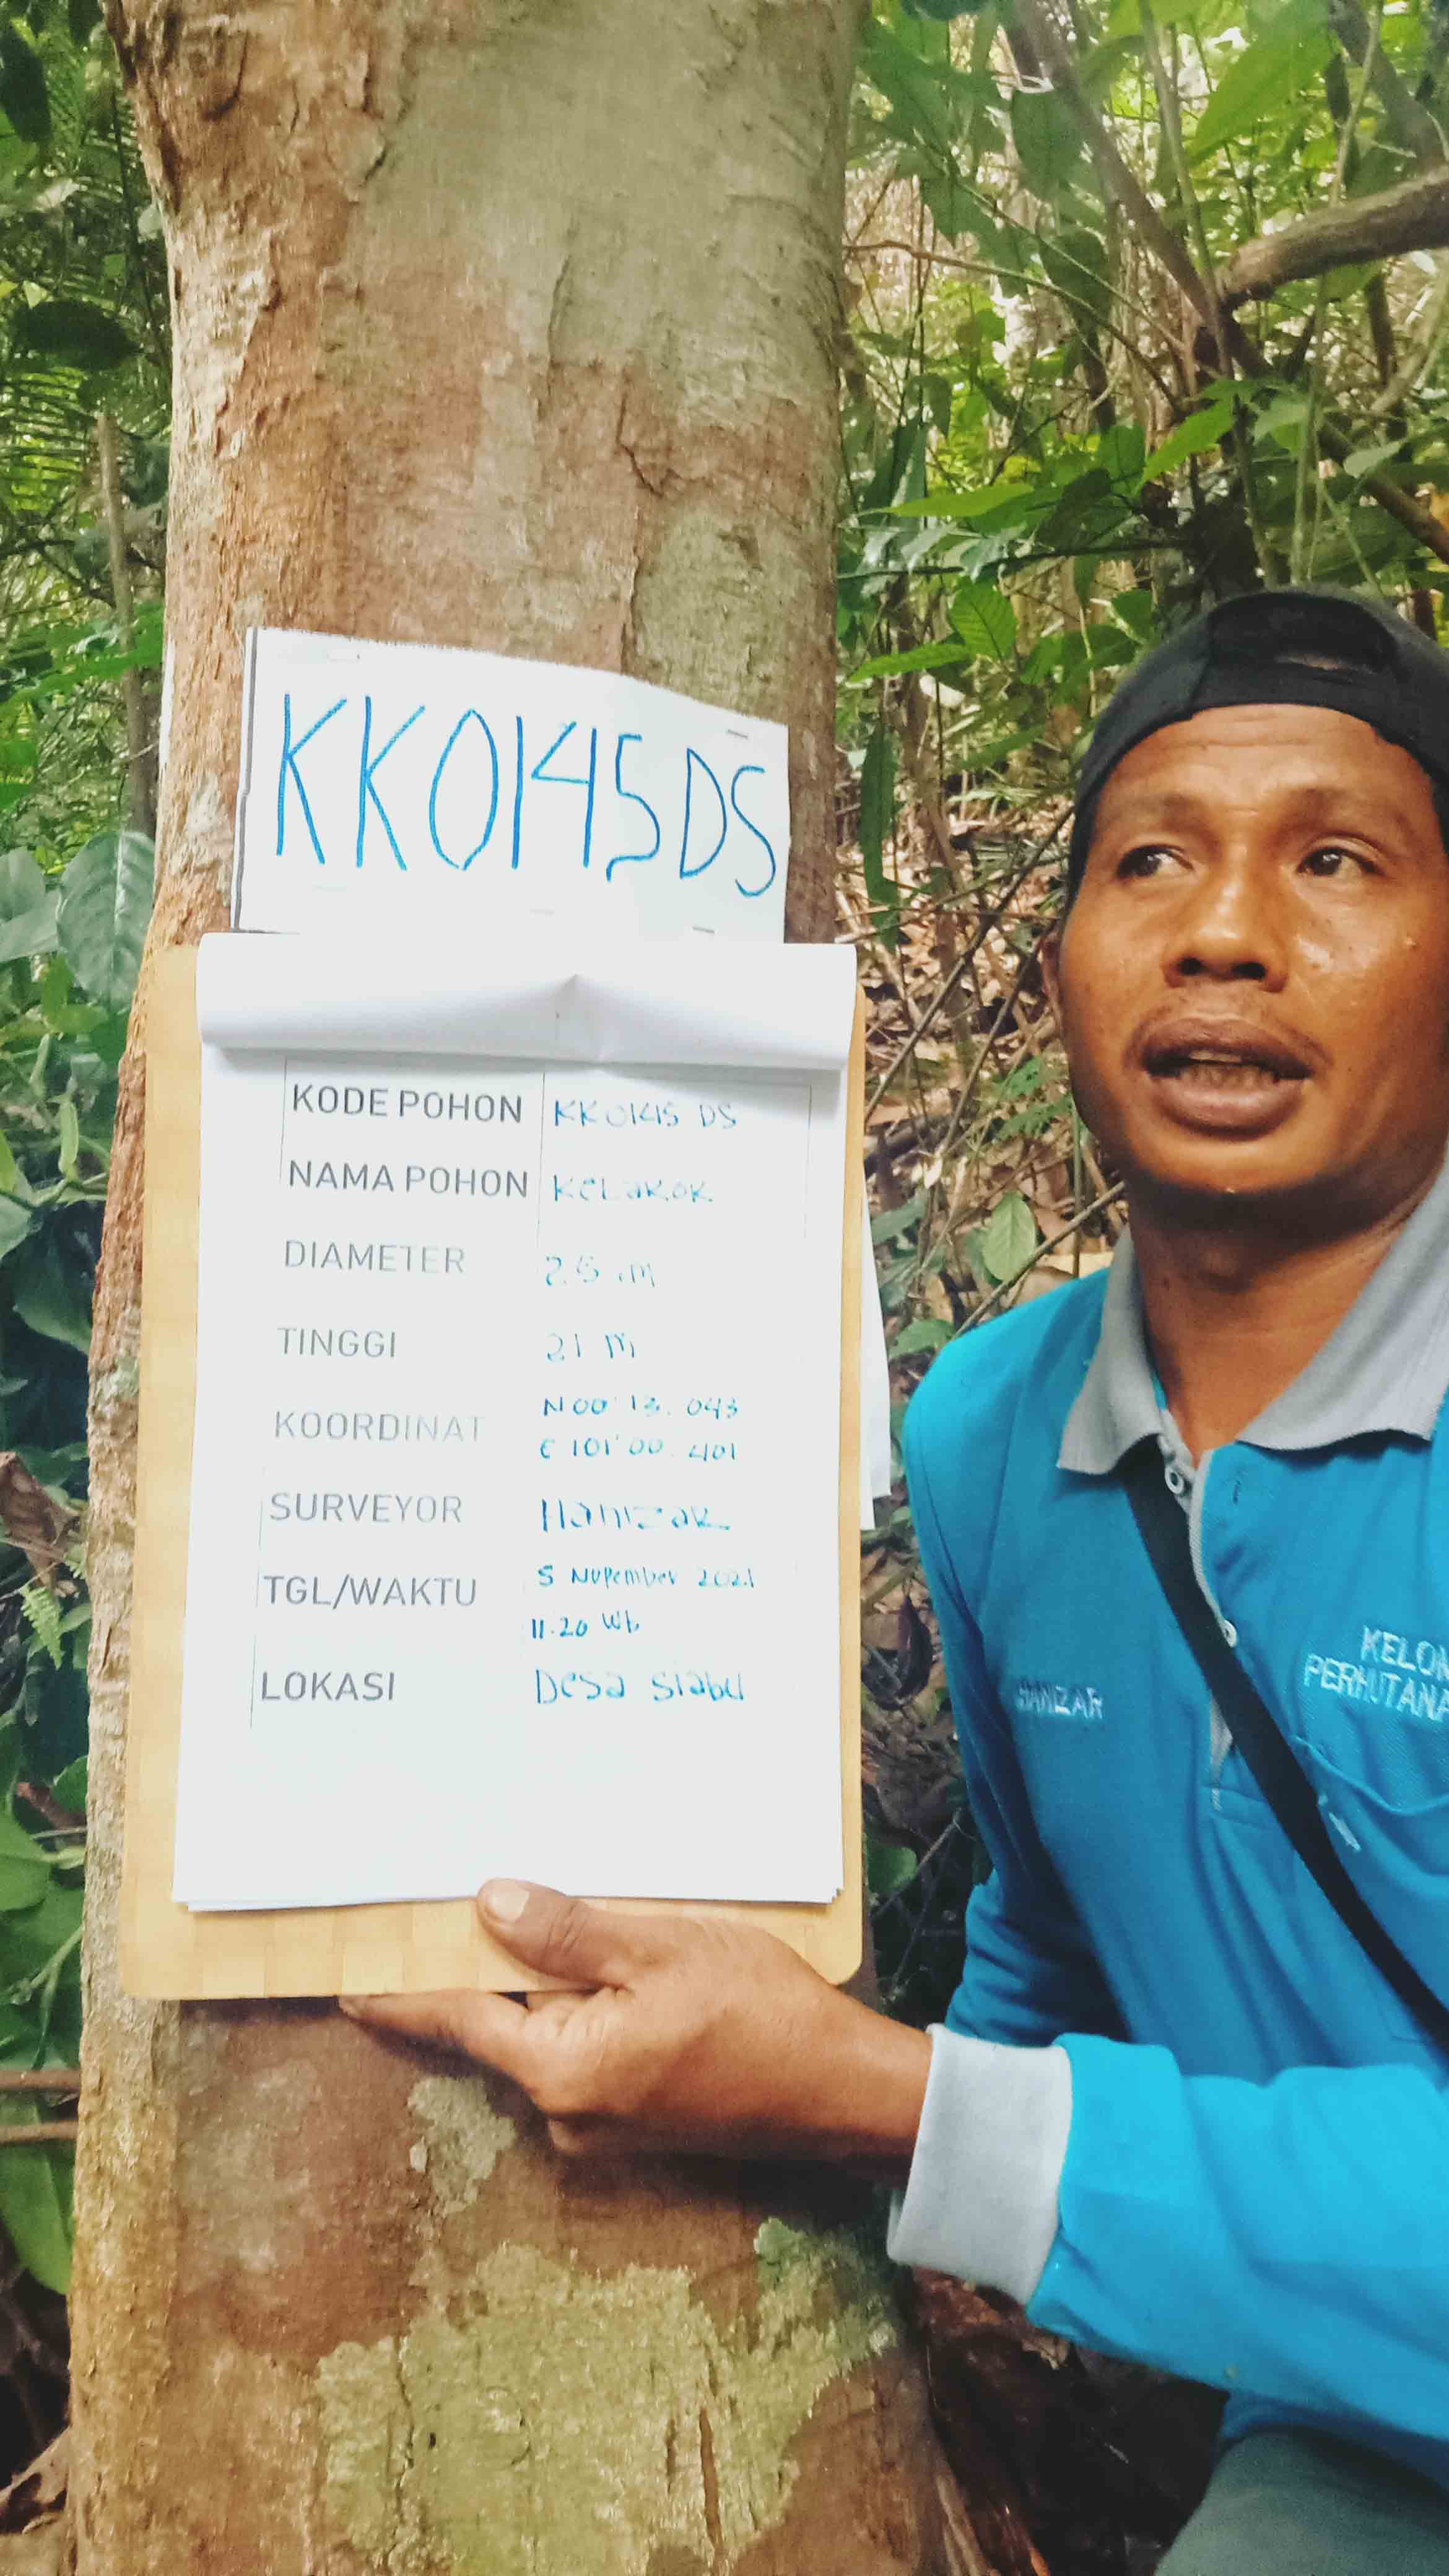 KK0145DS
KODE POHON KK0145 DS
NAMA POHON KeLakok
DIAMETER
TINGGI 21 M
KOORDINAT N 00° 13. 043
E 101° 00. 401
SURVEYOR Hamzar
TGL/WAKTU 5 November 2021
11.20 Wb
LOKASI Desa siabu
HAMZAR
KELOM
PERHUTANA